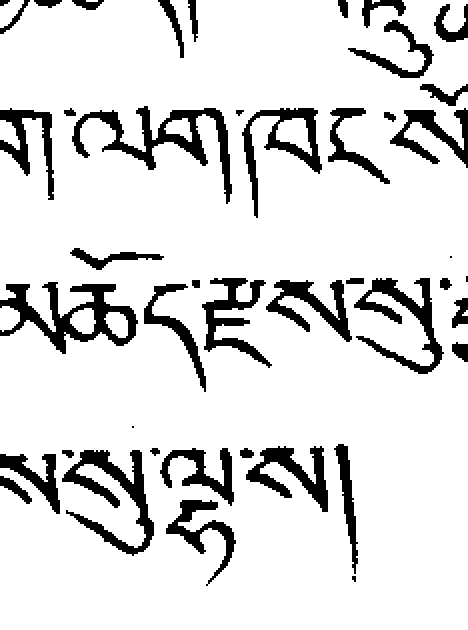 ག་ལག་ཁང་སོ
མཆོད་རྫས་སུ་
ས་སུ་ལྷ་ས།